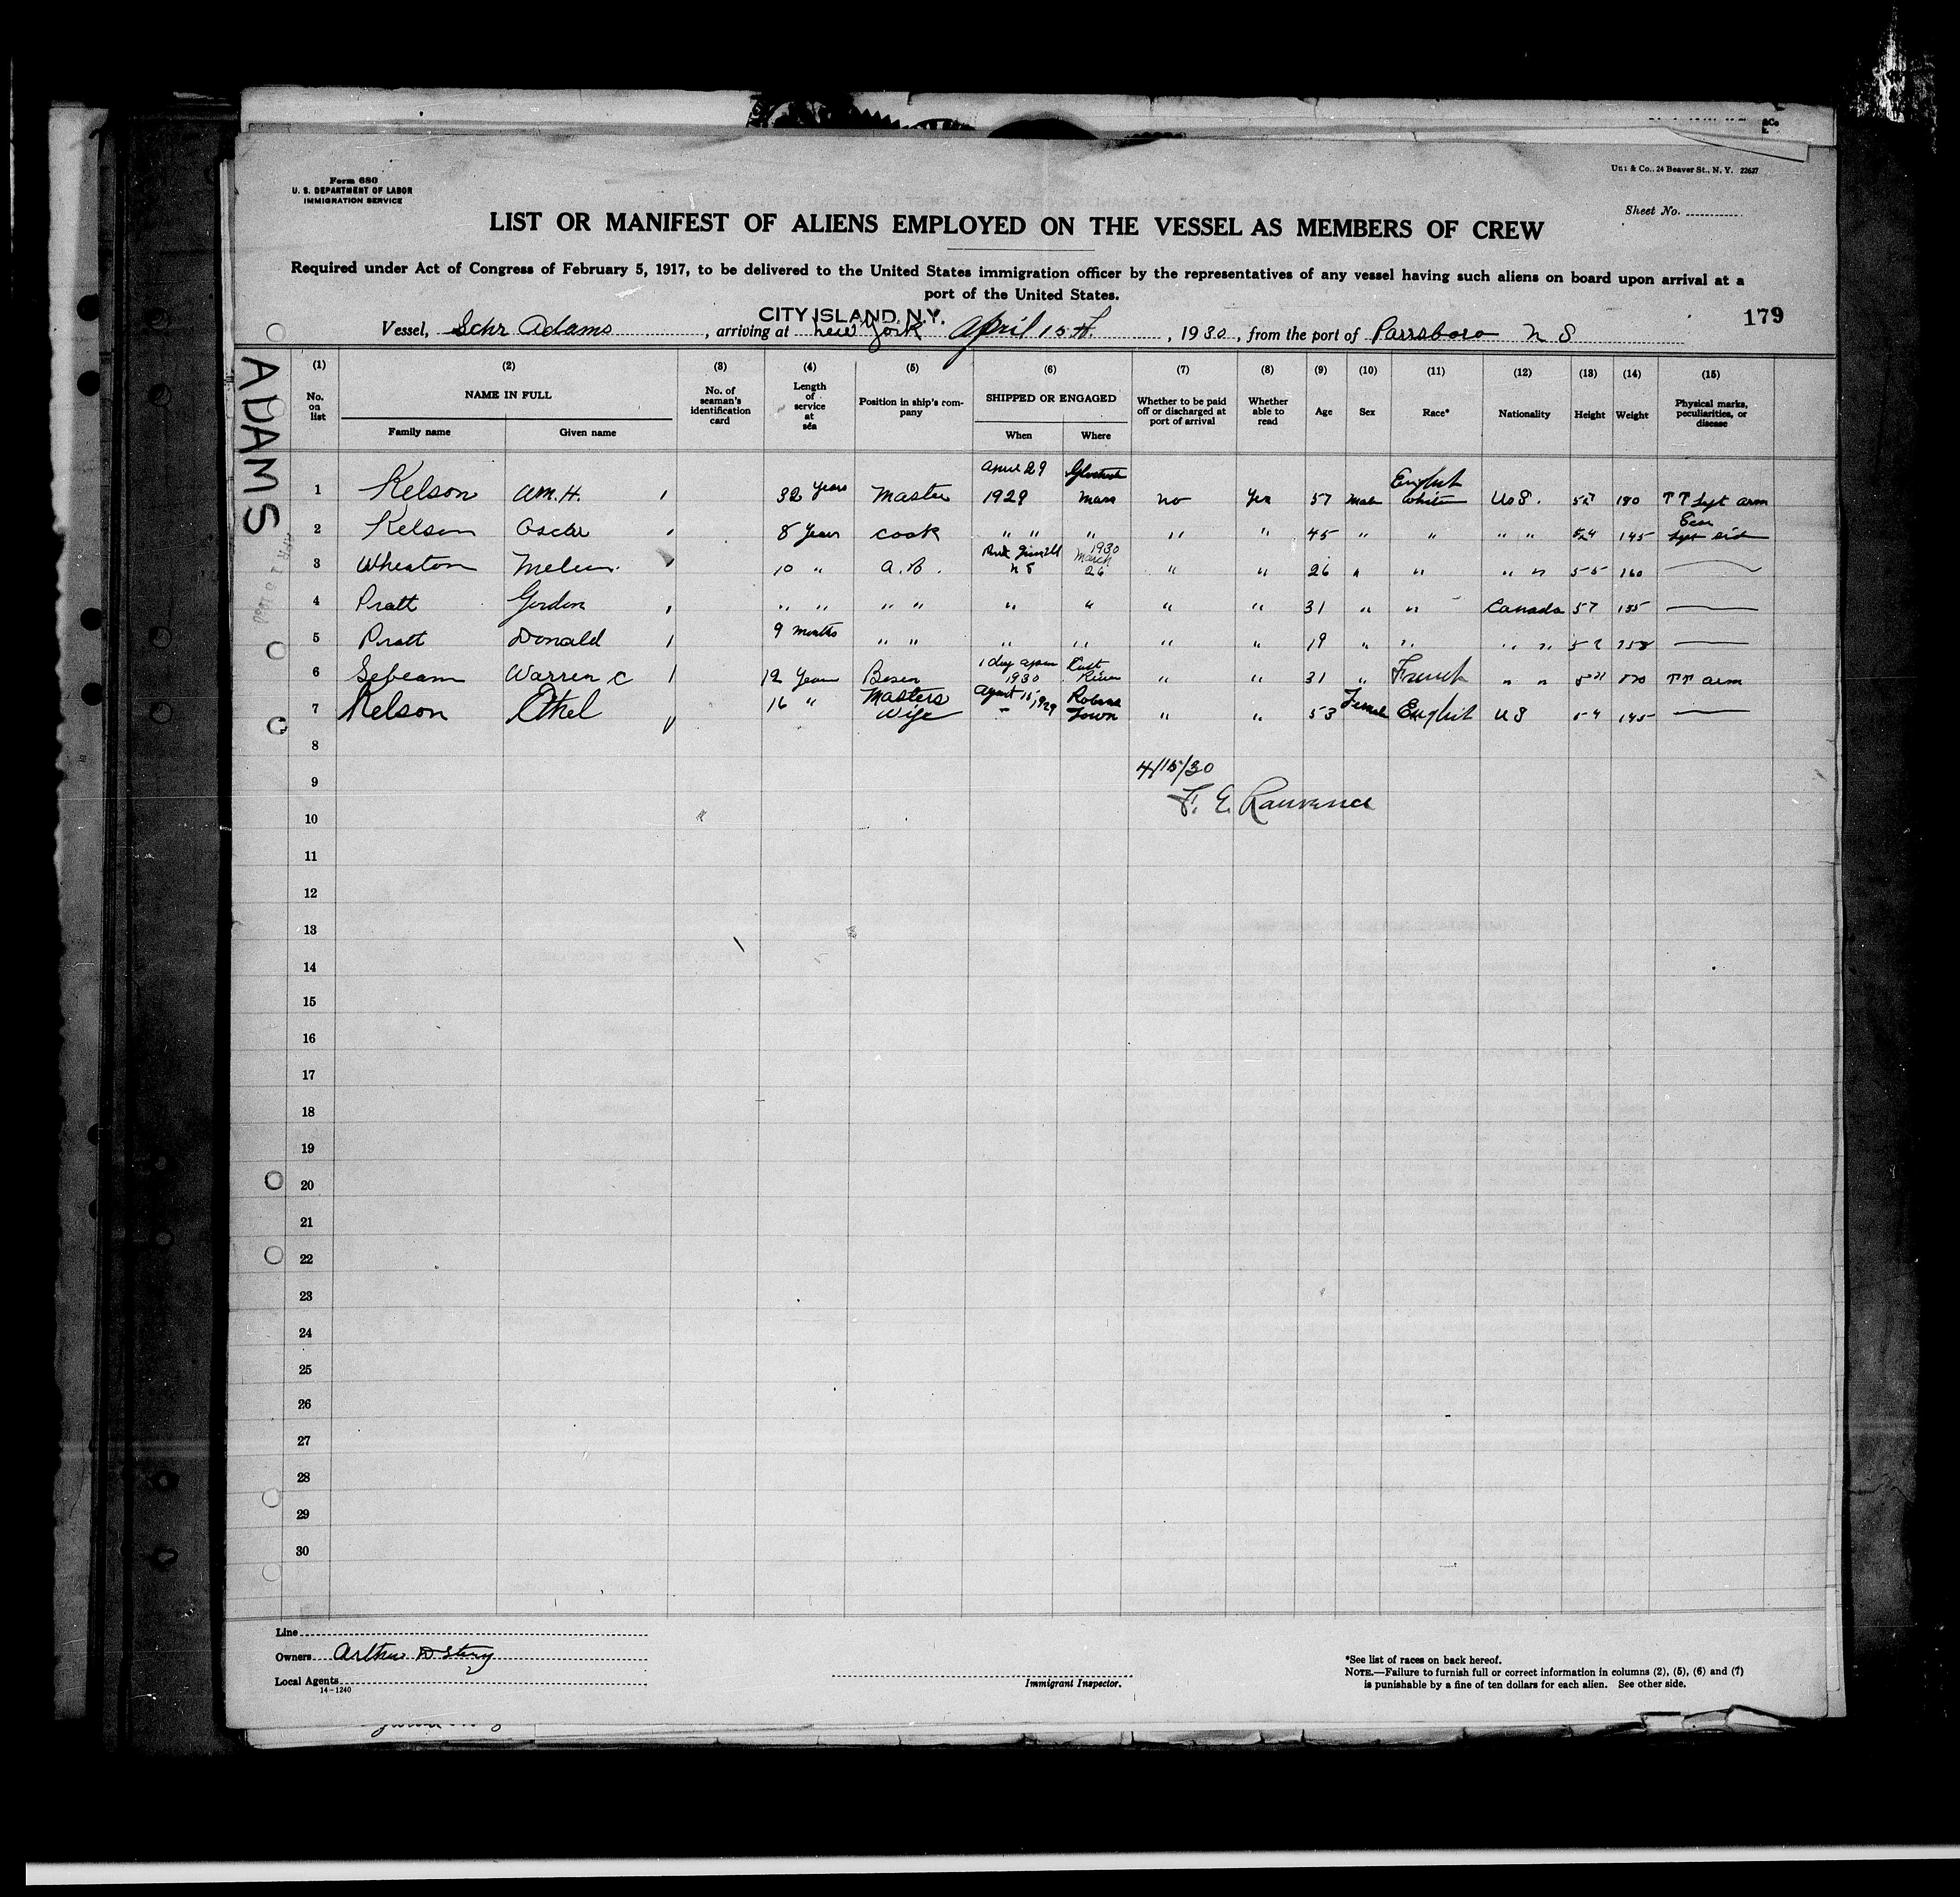 Form 680
U. S. DEPARTMENT OF LABOR
IMMIGRATION SERVICE
& Co., 24 Beaver St., N. Y. 22627
Sheet No.
LIST OR MANIFEST OF ALIENS EMPLOYED ON THE VESSEL AS MEMBERS OF CREW
Required under Act of Congress of February 5, 1917, to be delivered to the United States immigration officer by the representatives of any vessel having such aliens on board upon arrival at a
port of the United States.
CITY ISLAND, N.Y.
179
Vessel, Schr Adams, arriving at New York April 15th, 1930, from the port of Parrsboro N S
ADAMS
(1) (2) (3) (4) (5) (6) (7) (8) (9) (10) (11) (12) (13) (14) (15)
No. on list NAME IN FULL Family name Given name No. of seaman's identification card Length of service at sea Position in ship's company SHIPPED OR ENGAGED When Where Whether to be paid off or discharged at port of arrival Whether able to read Age Sex Race* Nationality Height Weight Physical marks, peculiarities, or disease
1 Kelson 32 years Master April 29 1929 Mass no Yes 57 Male English White U S. 180 TT Left arm
2 Kelson Oscar 8 Years cook " " " " " 45 " " " " 145 Left
3 Wheaton 10 " A. B. N S 1930 March 26 " " 26 " " " " 5-5 160 —
4 Pratt Gordon " " " " " " " " 31 " " Canada 57 155 —
5 Pratt Donald 9 Months " " " " " " 19 " " " " —
6 Warren C 12 Years 1930 River " " 31 " French " " TT arm
7 Kelson Ethel 16 " Masters Wife 1929 Town " " 53 Female English U S 5-4 145 —
8
4/15/30
9
10
11
12
13
14
15
16
17
18
19
20
21
22
23
24
25
26
27
28
29
30
Line
Owners Arthur D Story
Local Agents
14-1240
Immigrant Inspector.
*See list of races on back hereof.
NOTE.—Failure to furnish full or correct information in columns (2), (5), (6) and (7)
is punishable by a fine of ten dollars for each alien. See other side.